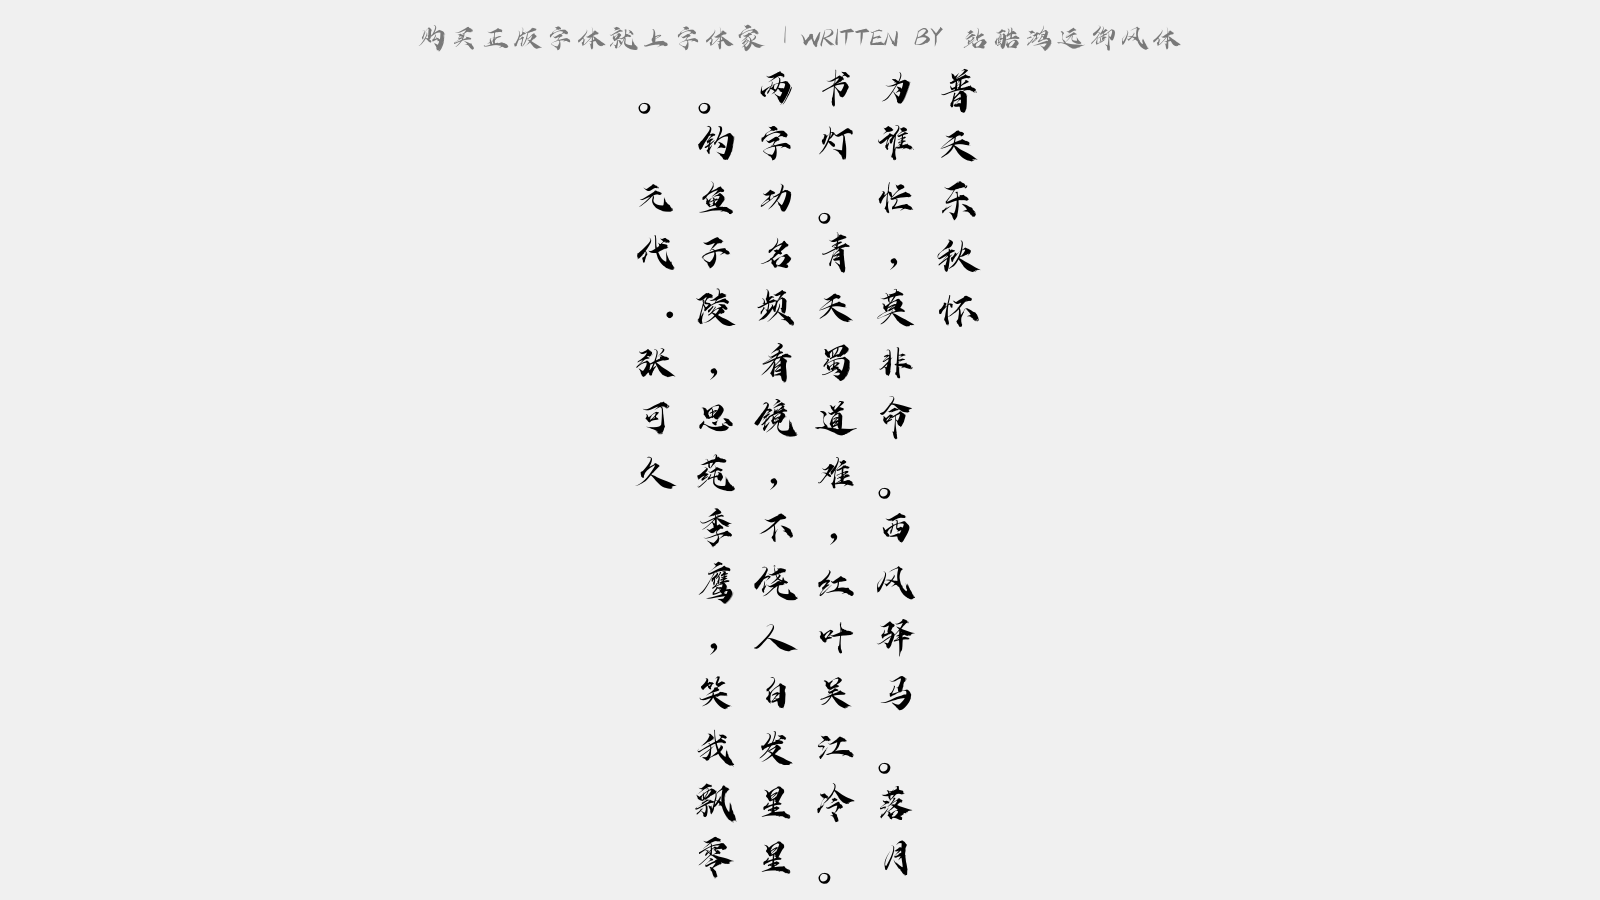 购买正版字体就上字体家 | WRITTEN BY 站酷鸿远御风体
普天乐秋怀
为谁忙，莫非命。西风驿马。落月
书灯。青天蜀道难，红叶吴江冷。
两字功名频看镜，不饶人白发星星
。钓鱼子陵，思莼季鹰，笑我飘零
。元代.张可久